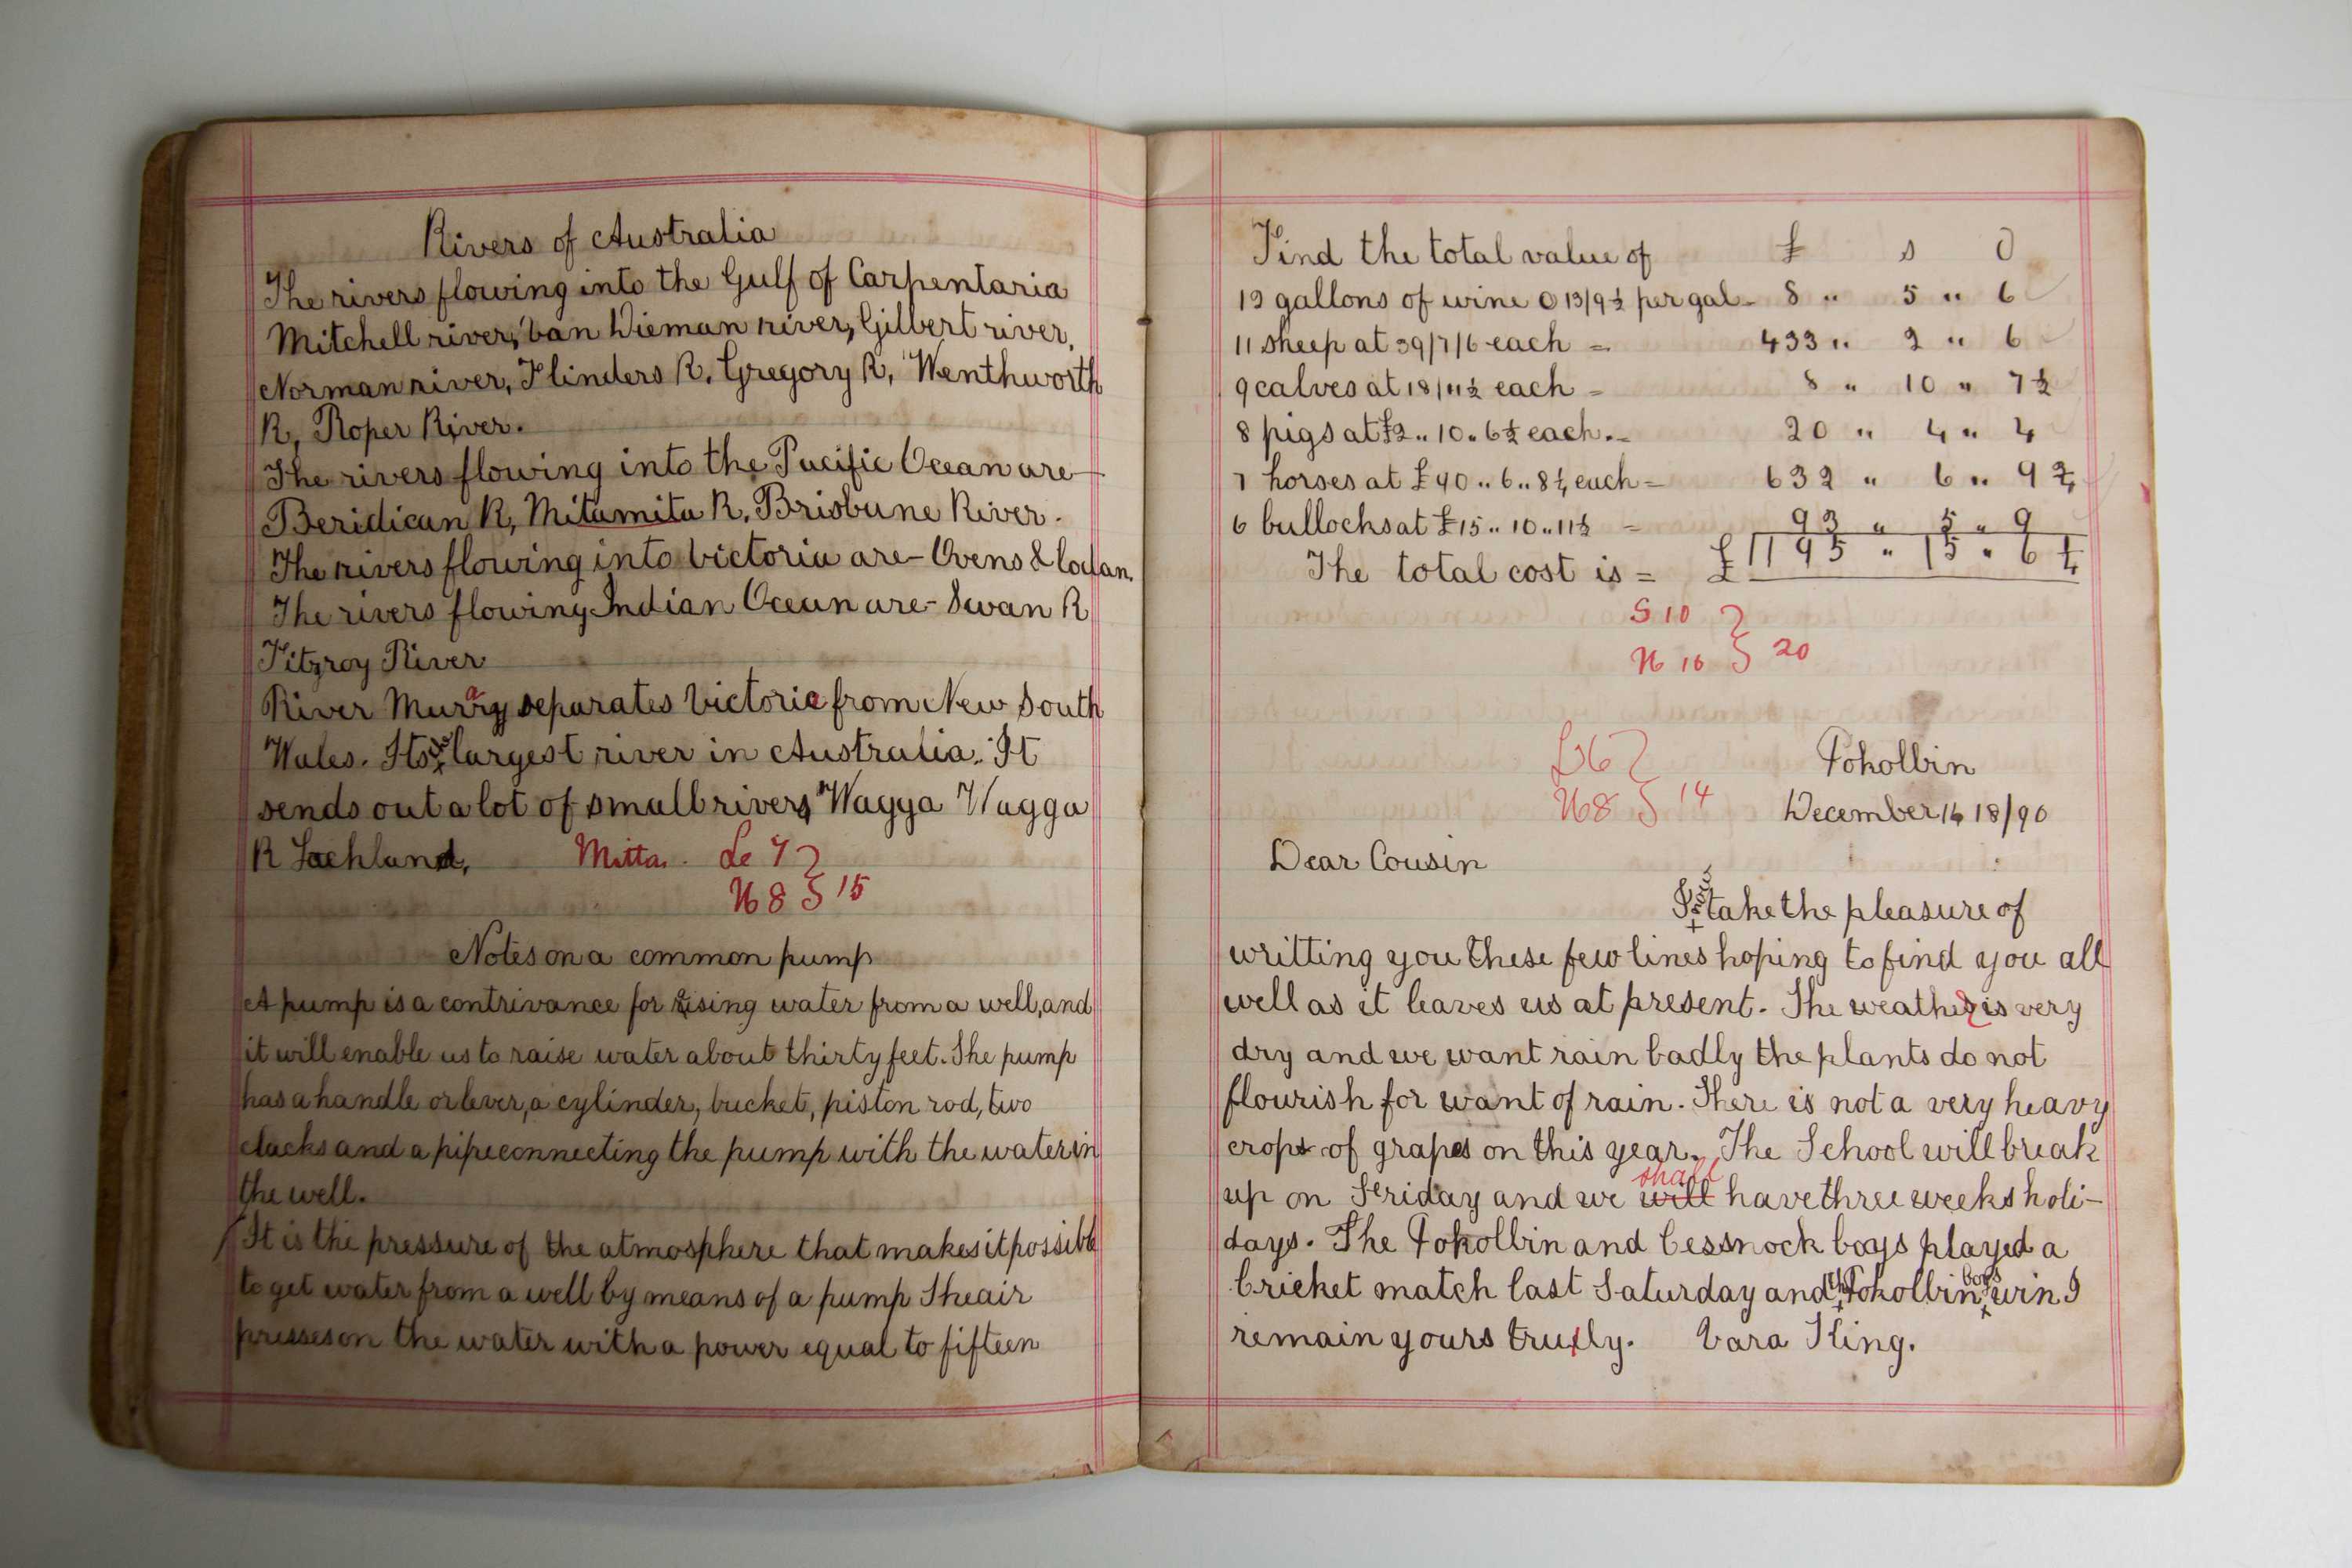 Rivers of Australia
The rivers flowing into the Gulf of Carpentaria
Mitchell river, Van Dieman river, Gilbert river,
Norman river, Flinders R, Gregory R, Wenthworth
R, Roper River.
The rivers flowing into the Pacific Ocean are—
Beridican R, Mitamita R, Brisbane River.
The rivers flowing into Victoria are— Ovens & Lodan.
The rivers flowing Indian Ocean are- Swan R
Fitzroy River
River Murray separates Victoria from New South
Wales. Its the largest river in Australia. It
sends out a lot of small rivers Wagga Wagga
R Lachland,
Mitta. Le 7
N 8 } 15
Notes on a common pump
A pump is a contrivance for raising water from a well, and
it will enable us to raise water about thirty feet. The pump
has a handle or lever, a cylinder, bucket, piston rod, two
clacks and a pipe connecting the pump with the water in
the well.
It is the pressure of the atmosphere that makes it possible
to get water from a well by means of a pump The air
presses on the water with a power equal to fifteen
Find the total value of £ s D
12 gallons of wine @ 13/9½ per gal - 8 " 5 " 6
11 sheep at 39/7/6 each = 433 " 2 " 6
9 calves at 18/11½ each = 8 " 10 " 7½
8 pigs at £2 " 10 " 6½ each. = 20 " 4 " 4
7 horses at £90 " 6 " 8¼ each = 632 " 6 " 9¾
6 bullocks at £15 " 10 " 11½ = 93 " 5 " 9
The total cost is = £1195 " 15 " 6¼
S 10
N 10 } 20
L 6
N 8 } 14
Pokolbin
December 14 18/90
Dear Cousin
I now take the pleasure of
writting you these few lines hoping to find you all
well as it leaves us at present. The weather is very
dry and we want rain badly the plants do not
flourish for want of rain. There is not a very heavy
crops of grapes on this year. The School will break
shall
up on Friday and we will have three weeks holi-
days. The Pokolbin and Cessnock boys played a
Cricket match last Saturday and the Pokolbin boys win I
remain yours truely. Vara King.